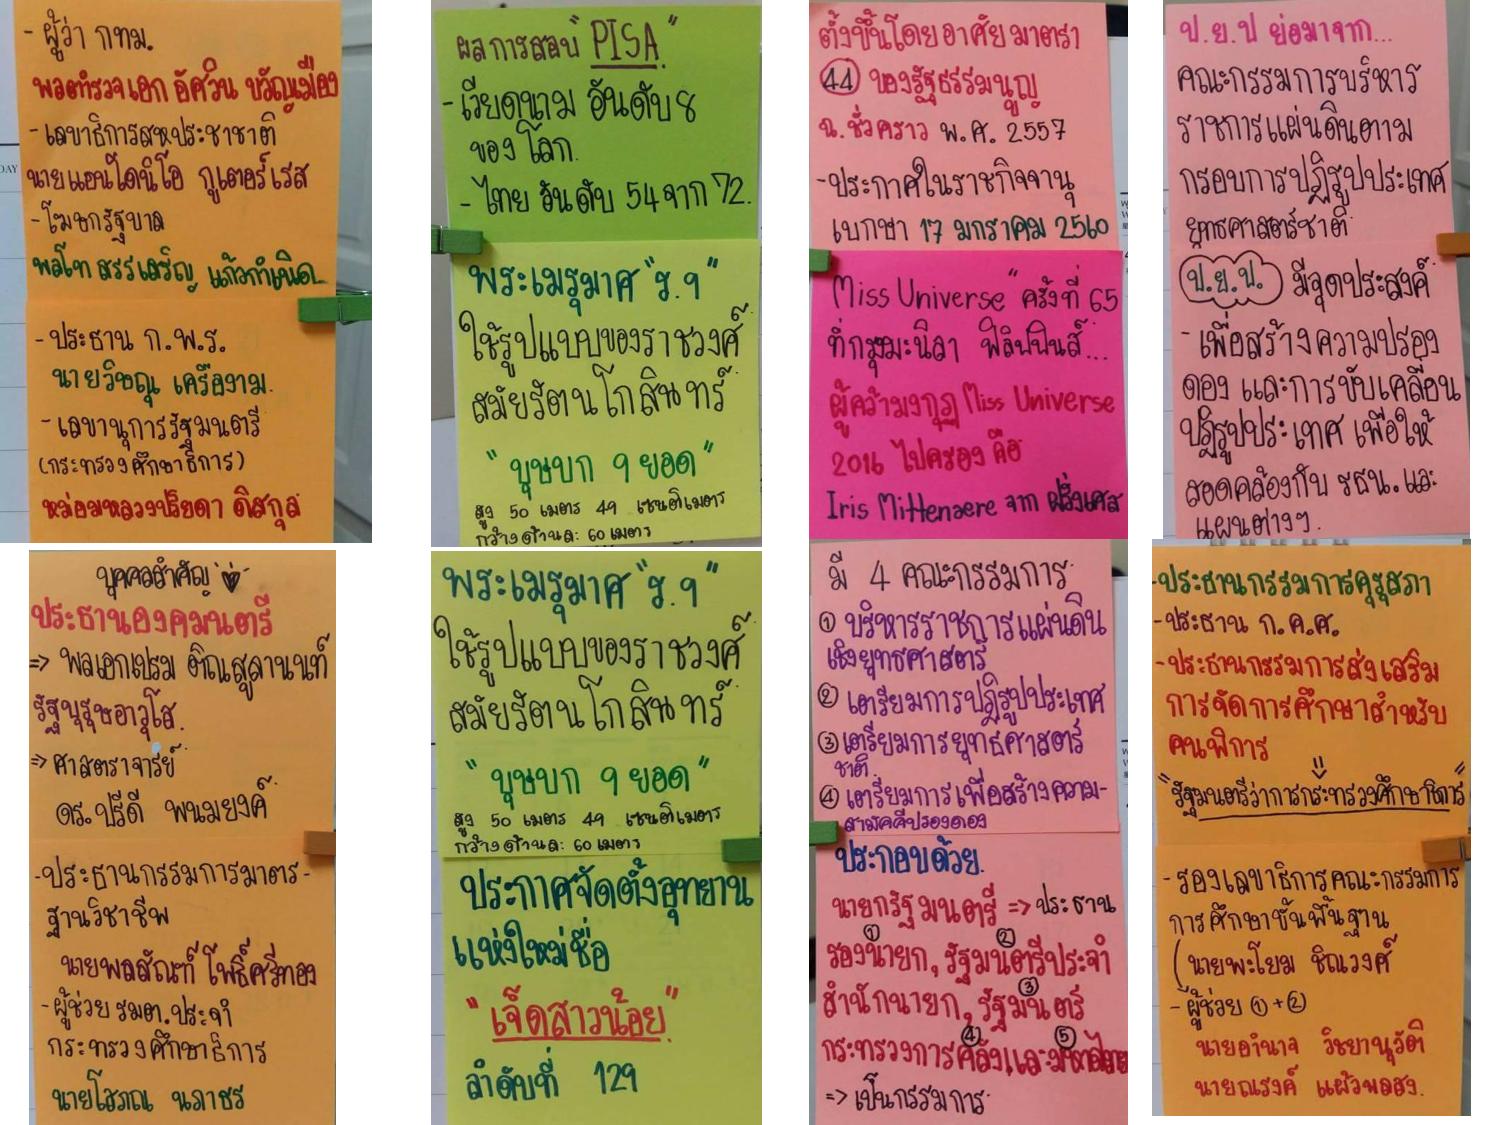 - ผู้ว่า กทม.
พลตำรวจเอก อัศวิน ขวัญเมือง
- เลขาธิการสหประชาชาติ
นายแอนโตนิโอ กูเตอร์เรส
- โฆษกรัฐบาล
พลโท สรรเสริญ แก้วกำเนิด
- ประธาน ก.พ.ร.
นายวิษณุ เครืองาม.
- เลขานุการรัฐมนตรี
(กระทรวงศึกษาธิการ)
หม่อมหลวงปริยดา ดิสกุล
ผลการสอบ "PISA"
- เวียดนาม อันดับ 8
ของโลก.
- ไทย อันดับ 54 จาก 72.
พระเมรุมาศ "ร.9"
ใช้รูปแบบของราชวงศ์
สมัยรัตนโกสินทร์
"บุษบก 9 ยอด"
สูง 50 เมตร 49 เซนติเมตร
กว้างด้านละ 60 เมตร
ตั้งขึ้นโดยอาศัยมาตรา
44 ของรัฐธรรมนูญ
ฉ.ชั่วคราว พ.ศ. 2557
- ประกาศในราชกิจจานุ
เบกษา 17 มกราคม 2560
Miss Universe" ครั้งที่ 65
ที่กรุงมะนิลา ฟิลิปปินส์...
ผู้คว้ามงกุฎ Miss Universe
2016 ไปครอง คือ
Iris Mittenaere จาก ฝรั่งเศส
ป.ย.ป ย่อมาจาก...
คณะกรรมการบริหาร
ราชการแผ่นดินตาม
กรอบการปฏิรูปประเทศ
ยุทธศาสตร์ชาติ
ป.ย.ป. มีจุดประสงค์
- เพื่อสร้างความปรอง
ดอง และการขับเคลื่อน
ปฏิรูปประเทศ เพื่อให้
สอดคล้องกับ รธน. และ
แผนต่างๆ.
บุคคลสำคัญ
ประธานองคมนตรี
=> พลเอกเปรม ติณสูลานนท์
รัฐบุรุษอาวุโส.
=> ศาสตราจารย์
ดร. ปรีดี พนมยงค์
- ประธานกรรมการมาตร-
ฐานวิชาชีพ
นายพลสัณห์ โพธิ์ศรีทอง
- ผู้ช่วย รมต. ประจำ
กระทรวงศึกษาธิการ
นายโสภณ นภาธร
พระเมรุมาศ "ร.9"
ใช้รูปแบบของราชวงศ์
สมัยรัตนโกสินทร์
"บุษบก 9 ยอด"
สูง 50 เมตร 49 เซนติเมตร
กว้างด้านละ 60 เมตร
ประกาศจัดตั้งอุทยาน
แห่งใหม่ชื่อ
"เจ็ดสาวน้อย"
ลำดับที่ 129
มี 4 คณะกรรมการ
① บริหารราชการแผ่นดิน
เชิงยุทธศาสตร์
② เตรียมการปฏิรูปประเทศ
③ เตรียมการยุทธศาสตร์
ชาติ.
④ เตรียมการเพื่อสร้างความ-
สามัคคีปรองดอง
ประกอบด้วย.
นายกรัฐมนตรี => ประธาน
① ②
รองนายก, รัฐมนตรีประจำ
③
สำนักนายก, รัฐมนตรี
④ ⑤
กระทรวงการคลัง, และมหาดไทย
=> เป็นกรรมการ
- ประธานกรรมการคุรุสภา
- ประธาน ก.ค.ศ.
- ประธานกรรมการส่งเสริม
การจัดการศึกษาสำหรับ
คนพิการ
"รัฐมนตรีว่าการกระทรวงศึกษาธิการ"
- รองเลขาธิการคณะกรรมการ
การศึกษาขั้นพื้นฐาน
(นายพะโยม ชิณวงศ์
- ผู้ช่วย ①+②
นายอำนาจ วิชยานุวัติ
นายณรงค์ แผ้วพลสง.